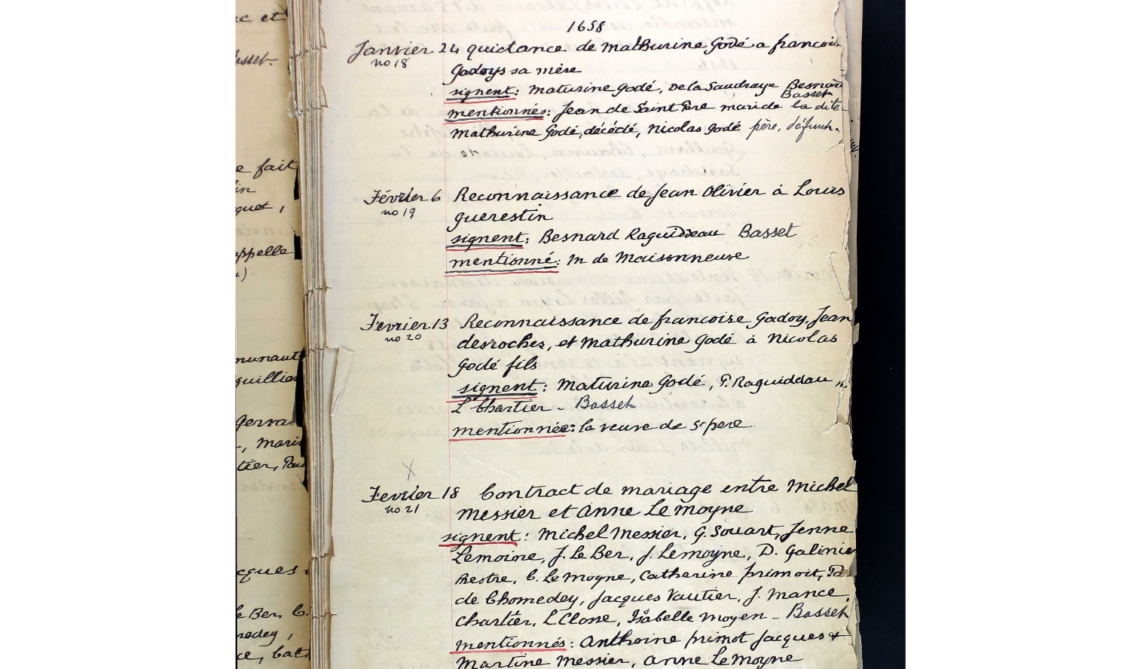 ec et
esset.
e fait
in
quet,
appelle
)
munaut
quillie
gerva
, marie
tier,
cques
le Ber, C.
medey,
e, cath
1658
Janvier 24 quictance de mathurine Godé a francois
no 18
Gadoys sa mère
signent: maturine Godé, De la Saudraye Besnard
Basset
mentionnés: Jean de Saint Père mari de la dite
Mathurine Godé, décédé, Nicolas Godé père, défunt.
Février 6 Reconnaissance de Jean Olivier à Louis
no 19
guerestin
signent: Besnard Raguideau Basset
mentionné: M de Maisonneuve
Fevrier 13 Reconnaissance de francoise Gadoy, Jean
no 20
desroches, et Mathurine Godé à Nicolas
Godé fils
signent: Maturine Godé, P. Raguiddau
L Chartier - Basset
mentionnée: la veuve de St pere
X
Fevrier 18 Contract de mariage entre Michel
no 21
Messier et Anne Le Moyne
signent: Michel Messier, G. Souart, Jenne
Lemoine, J. Le Ber, J. Lemoyne, D. Galinie
Restre, C. Le Moyne, Catherine primoit,
de Chomedey, Jacques Vautier, J. Mance,
Chartier, L Closse, Isabelle Moyen - Basset
mentionnés: Anthoine primot Jacques &
Martine Messier, Anne Le Moyne